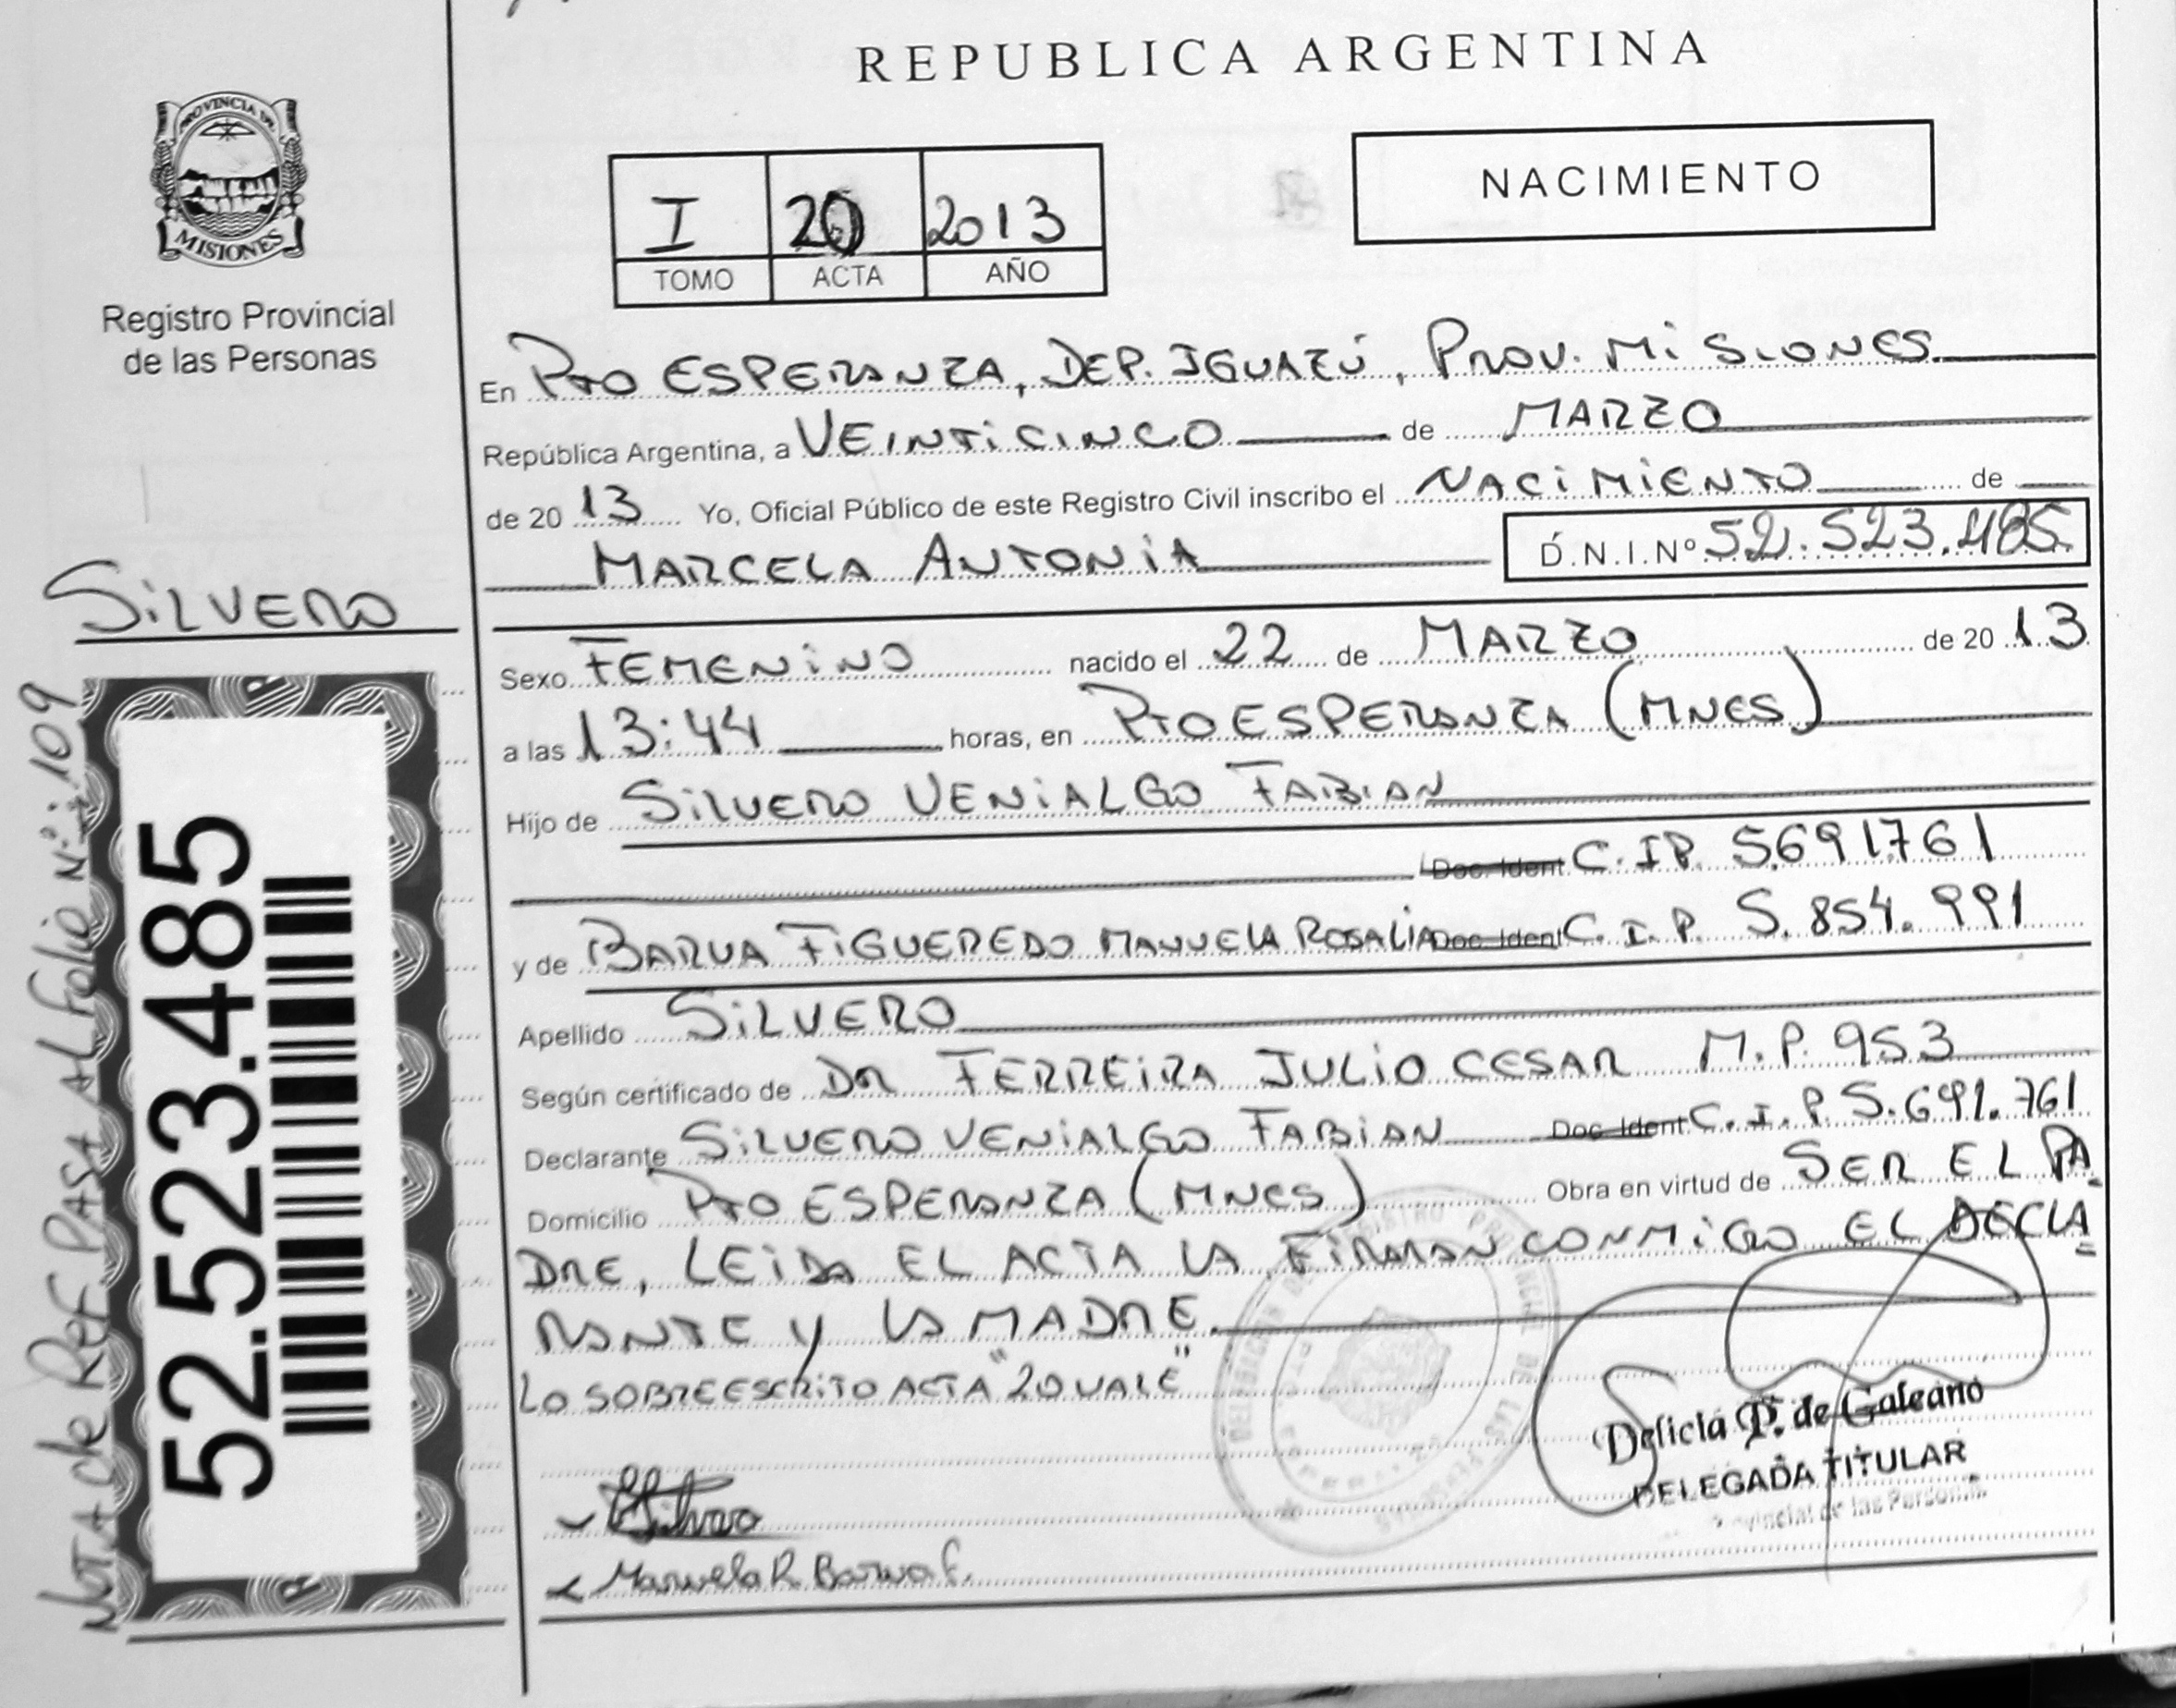 REPUBLICA ARGENTINA
PROVINCIA DE
MISIONES
Registro Provincial
de las Personas
I 20 2013
TOMO ACTA AÑO
NACIMIENTO
En Pto ESPERANZA, DEP. IGUAZÚ, PROV. MISIONES
República Argentina, a VEINTICINCO de MARZO
de 20 13 Yo, Oficial Público de este Registro Civil inscribo el NACIMIENTO de
MARCELA ANTONIA D.N.I.Nº 52.523.485
SILVERO
Sexo FEMENINO nacido el 22 de MARZO de 20 13
a las 13:44 horas, en Pto ESPERANZA (MNES)
Hijo de SILVERO VENIALGO FABIAN
Doc. Ident C.IP. 5691761
y de BARUA FIGUEREDO MANUELA ROSALIA Doc. Ident C.I.P. 5.854.991
Apellido SILVERO
Según certificado de DR FERREIRA JULIO CESAR M.P. 953
Declarante SILVERO VENIALGO FABIAN Doc. Ident C.I.P 5.691.761
Domicilio Pto ESPERANZA (MNES) Obra en virtud de SER EL PA
DRE, LEIDA EL ACTA LA FIRMAN CONMIGO EL DECLA
RANTE Y LA MADRE.
LO SOBREESCRITO ACTA "20 VALE"
Delicia P. de Galeano
DELEGADA TITULAR
Provincial de las Personas
Manuela R Barua F.
52.523.485
NOTA de Ref. PASA AL Folio Nº: 109